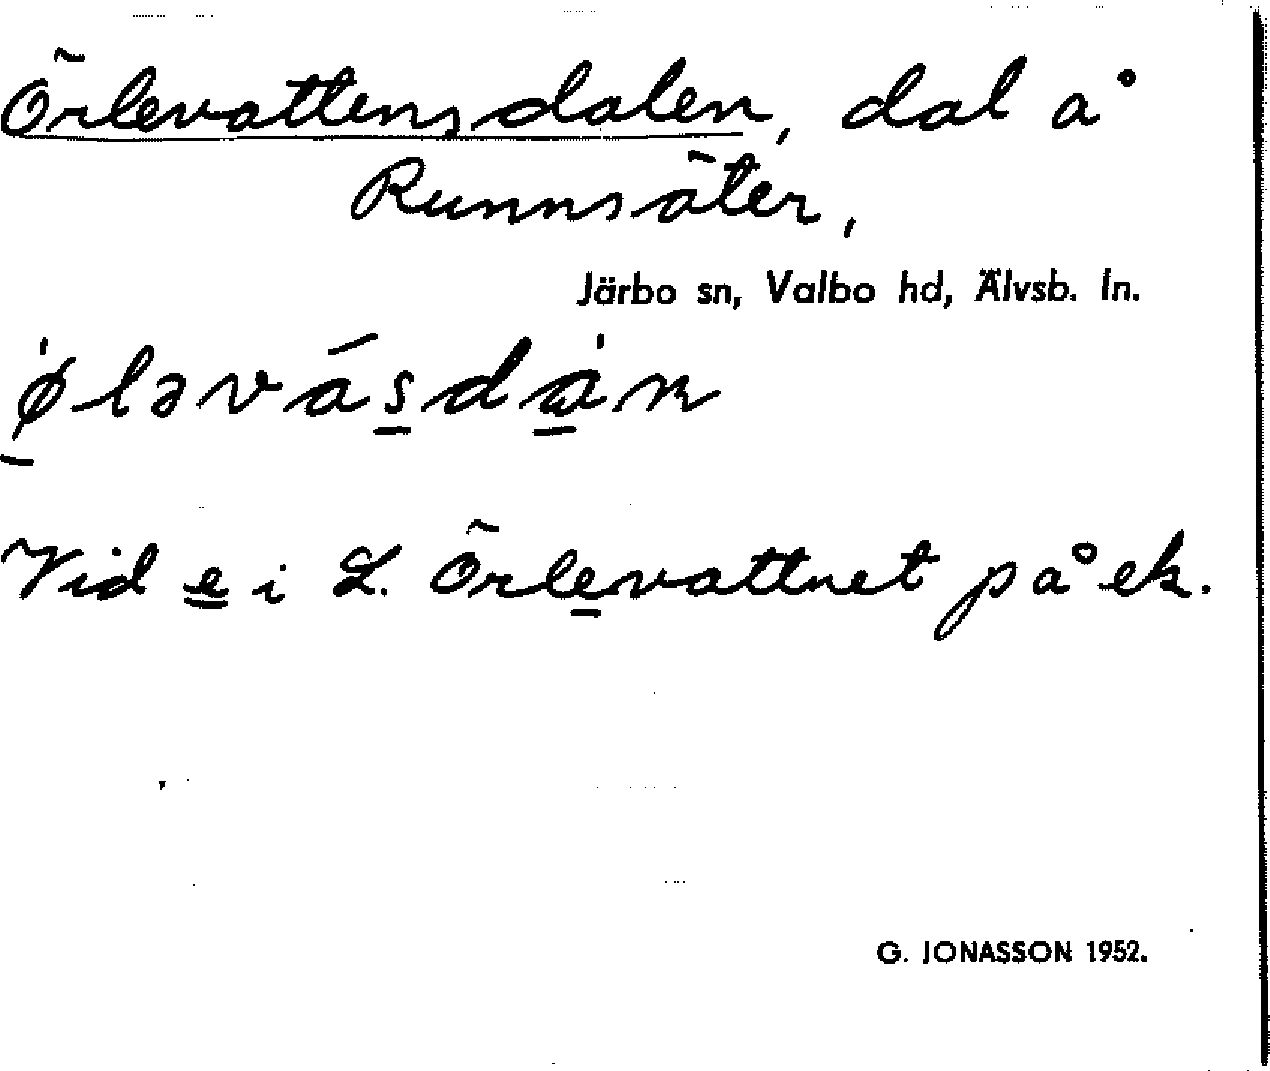 Örlevattensdalen, dal å
Runnsäter,
Järbo sn, Valbo hd, Älvsb. ln.
ø̱̍ləvás̱da̱̍n
Vid e i L. Örlevattnet på ek.
G. JONASSON 1952.